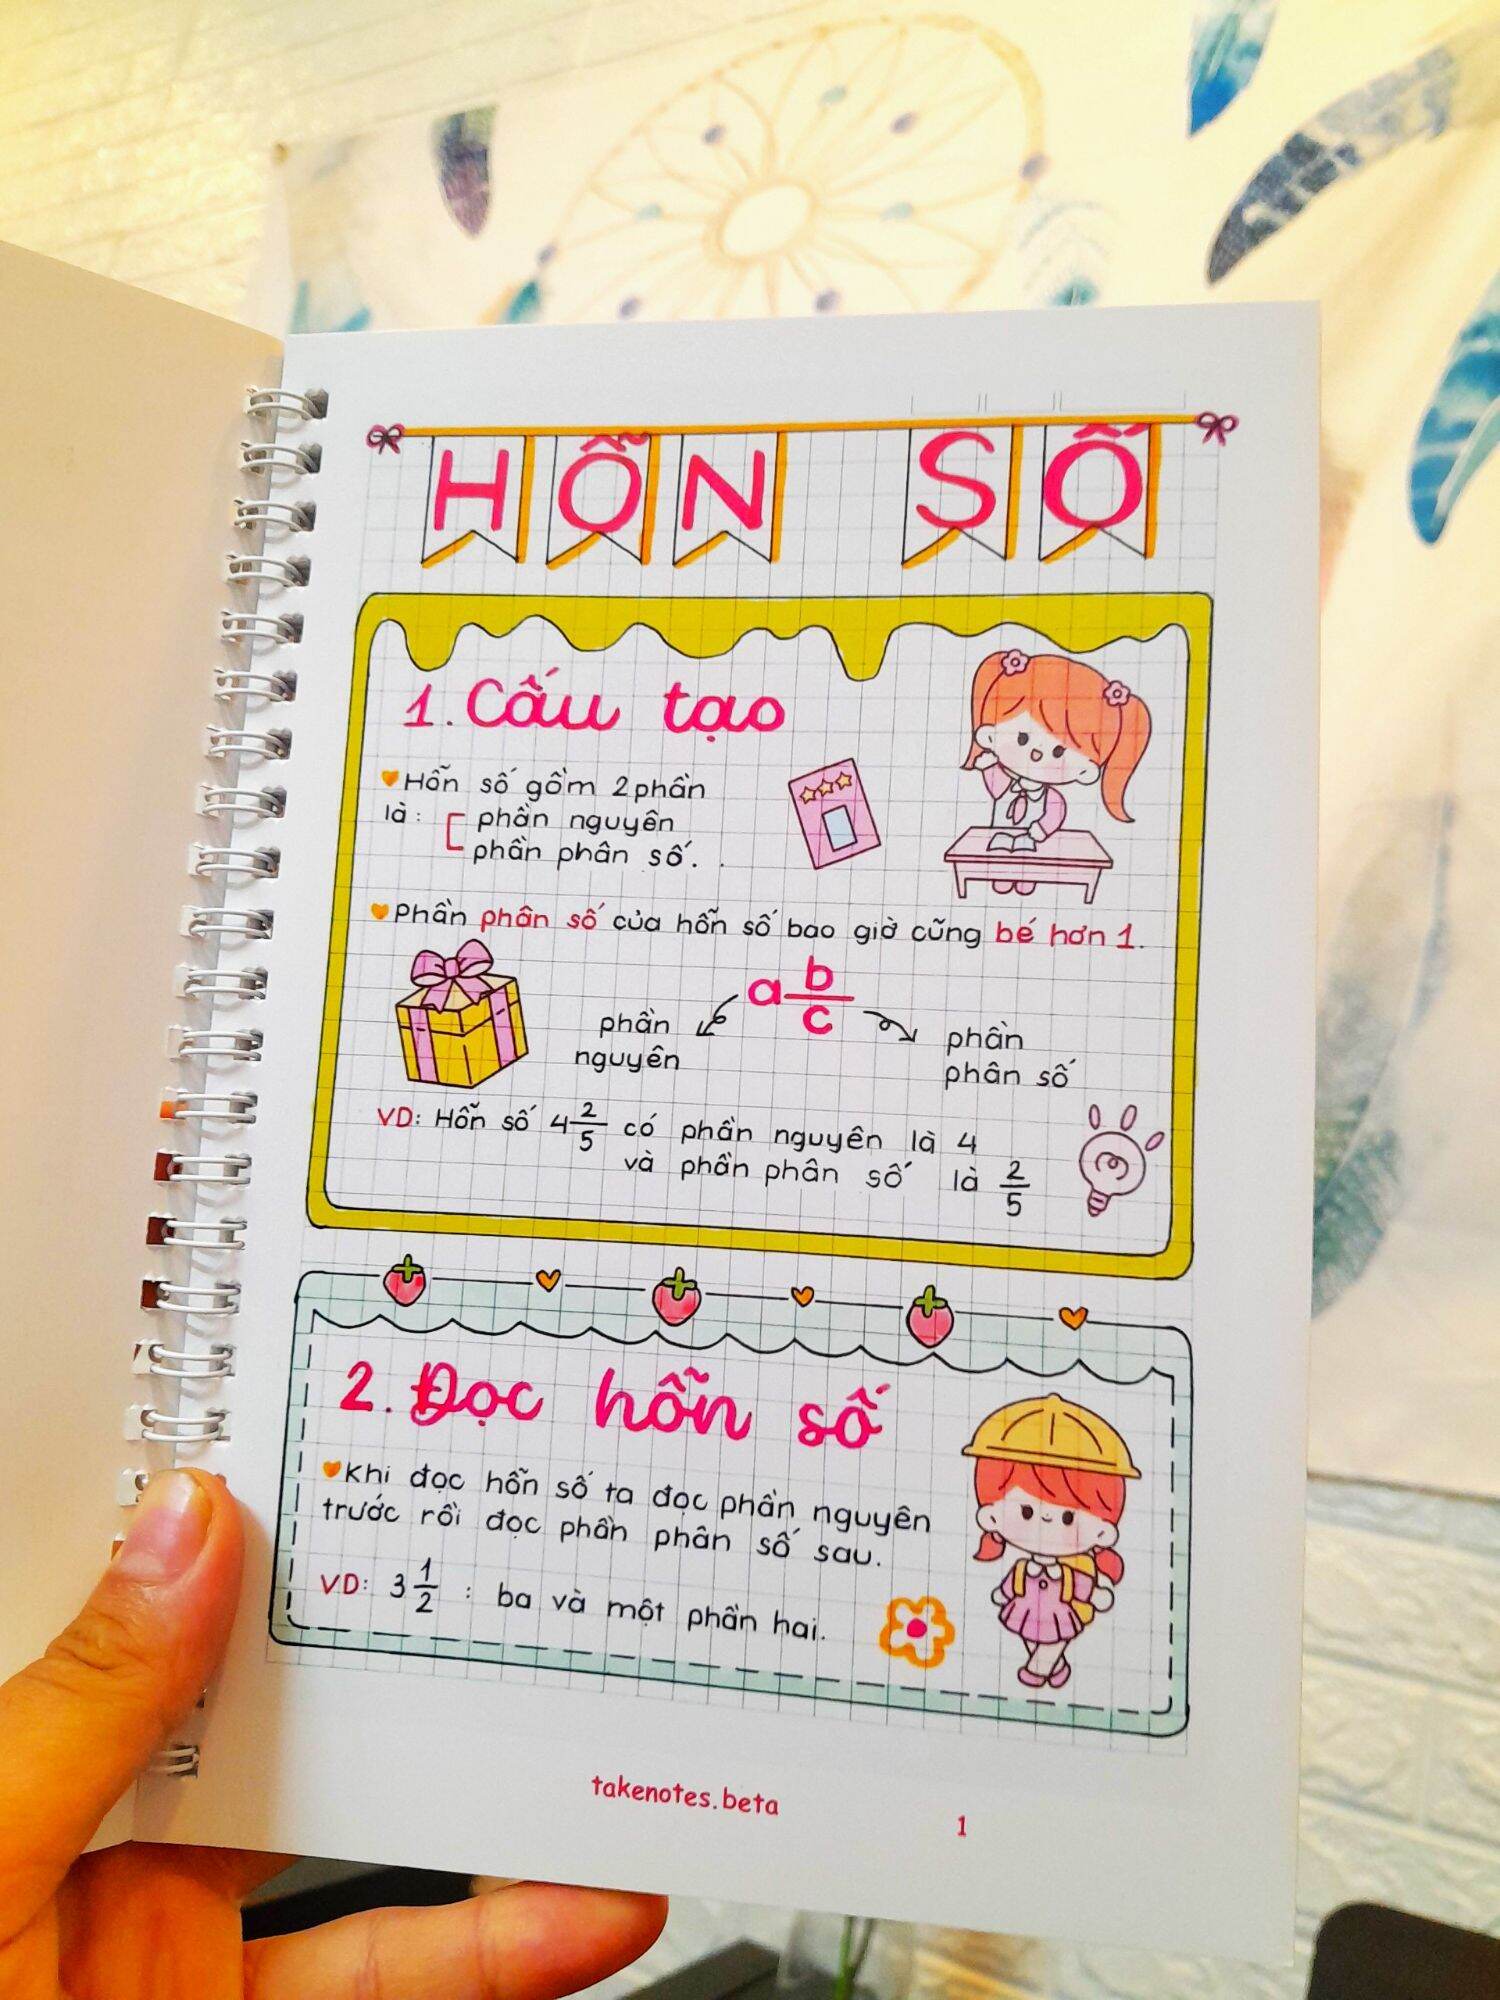 HỖN SỐ
1. Cấu tạo
Hỗn số gồm 2 phần
là: [ phần nguyên
phần phân số.
Phần phân số của hỗn số bao giờ cũng bé hơn 1.
a b/c
phần
nguyên
phần
phân số
VD: Hỗn số 4 2/5 có phần nguyên là 4
và phần phân số là 2/5
2. Đọc hỗn số
Khi đọc hỗn số ta đọc phần nguyên
trước rồi đọc phần phân số sau.
VD: 3 1/2 : ba và một phần hai.
takenotes.beta
1